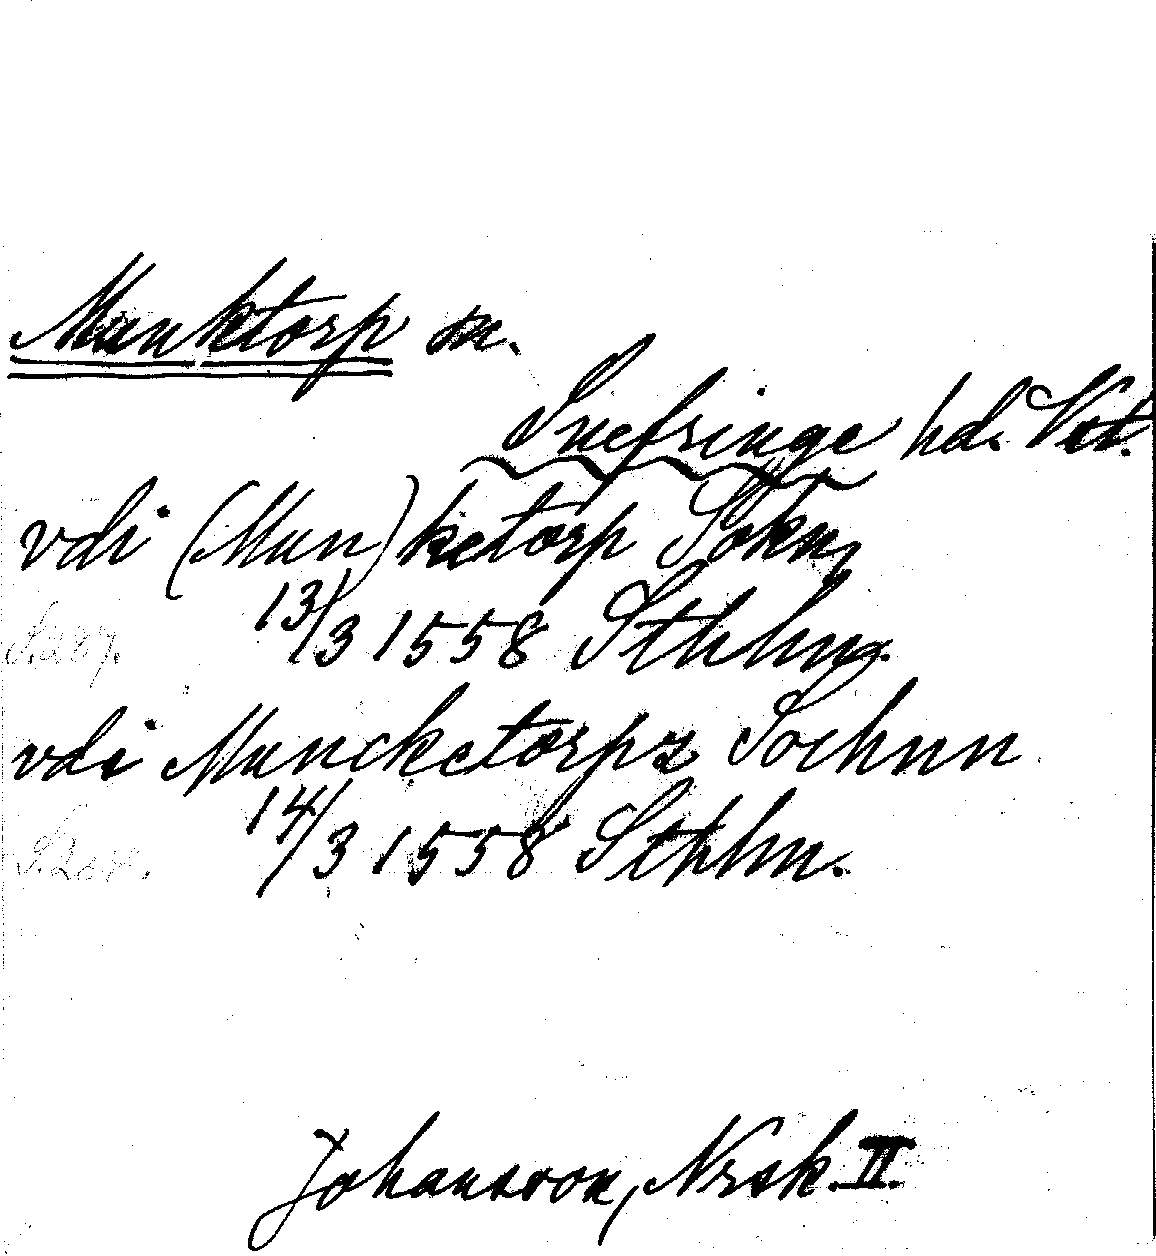 Munktorp sn.
Snefringe hd. Vst.
vdi (Mun)ketorp Sokn,
13/3 1558 Sthlm.
S. 237.
vdi Muncketorpz Sochnn
14/3 1558 Sthlm.
Johansson, Nrsk. II.